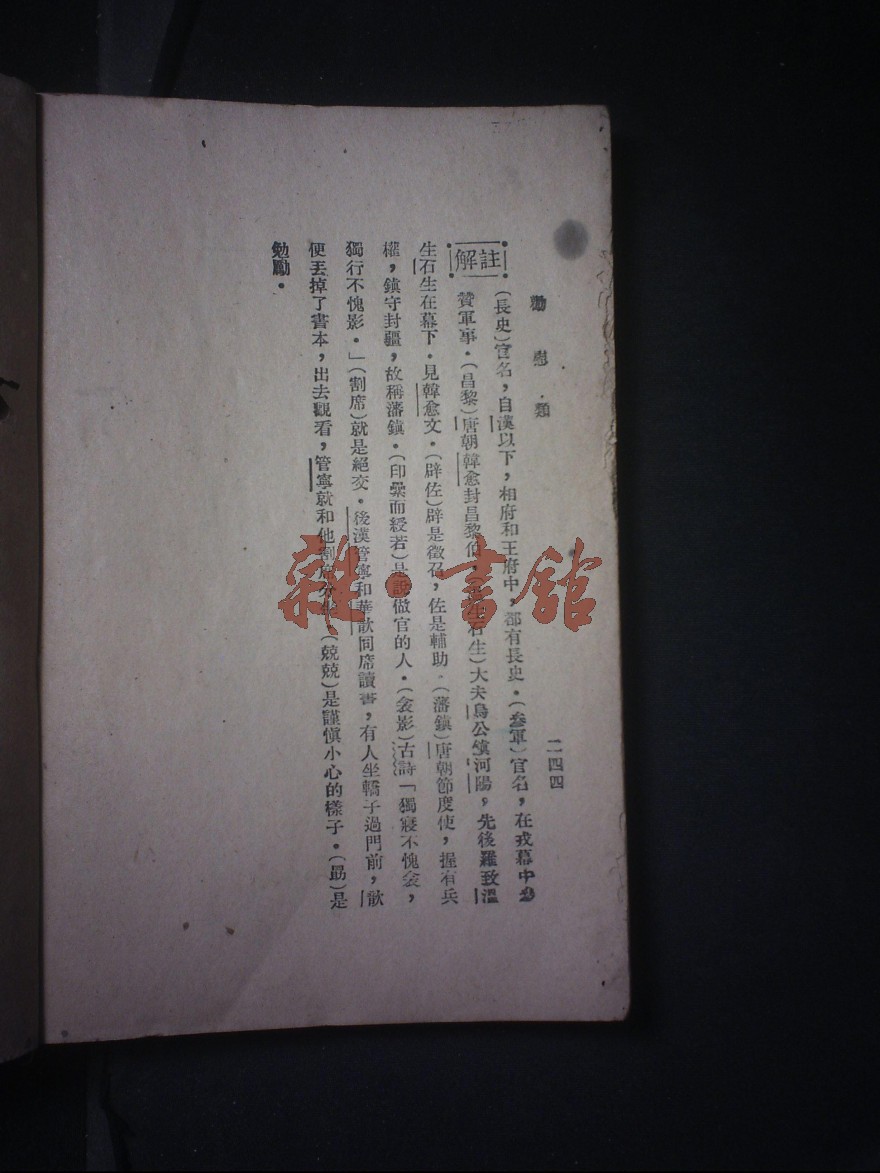 勸慰類
二四四
註解
(長史)官名，自漢以下，相府和王府中，都有長史．(參軍)官名，在戎幕中參
贊軍事．(昌黎)唐朝韓愈封昌黎伯．生石生)大夫烏公鎮河陽，先後羅致溫
生石生在幕下．見韓愈文．(辟佐)辟是徵召，佐是輔助．(藩鎮)唐朝節度使，握有兵
權，鎮守封疆，故稱藩鎮．(印纍而綬若)是說做官的人．(衾影)古詩「獨寢不愧衾，
獨行不愧影．」(割席)就是絕交．後漢管寧和華歆同席讀書，有人坐轎子過門前，歆
便丟掉了書本，出去觀看，管寧就和他割席分坐．(兢兢)是謹慎小心的樣子．(勗)是
勉勵．
雜·書館